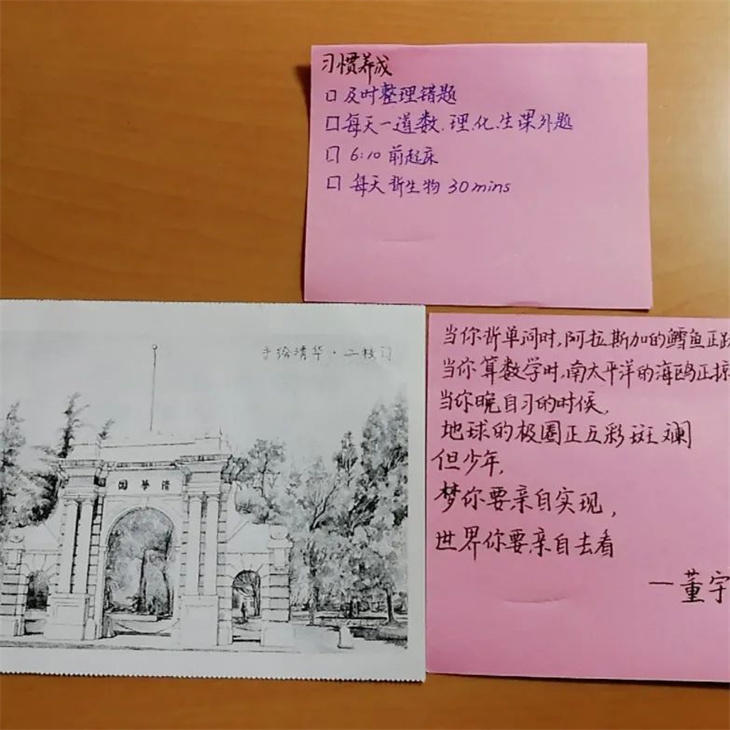 习惯养成
□ 及时整理错题
□ 每天一道数、理、化、生课外题
□ 6:10 前起床
□ 每天背生物 30 mins
手绘清华·二校门
園華清
当你背单词时,阿拉斯加的鳕鱼正跃
当你算数学时,南太平洋的海鸥正掠
当你晚自习的时候,
地球的极圈正五彩斑斓
但少年,
梦你要亲自实现,
世界你要亲自去看
—董宇